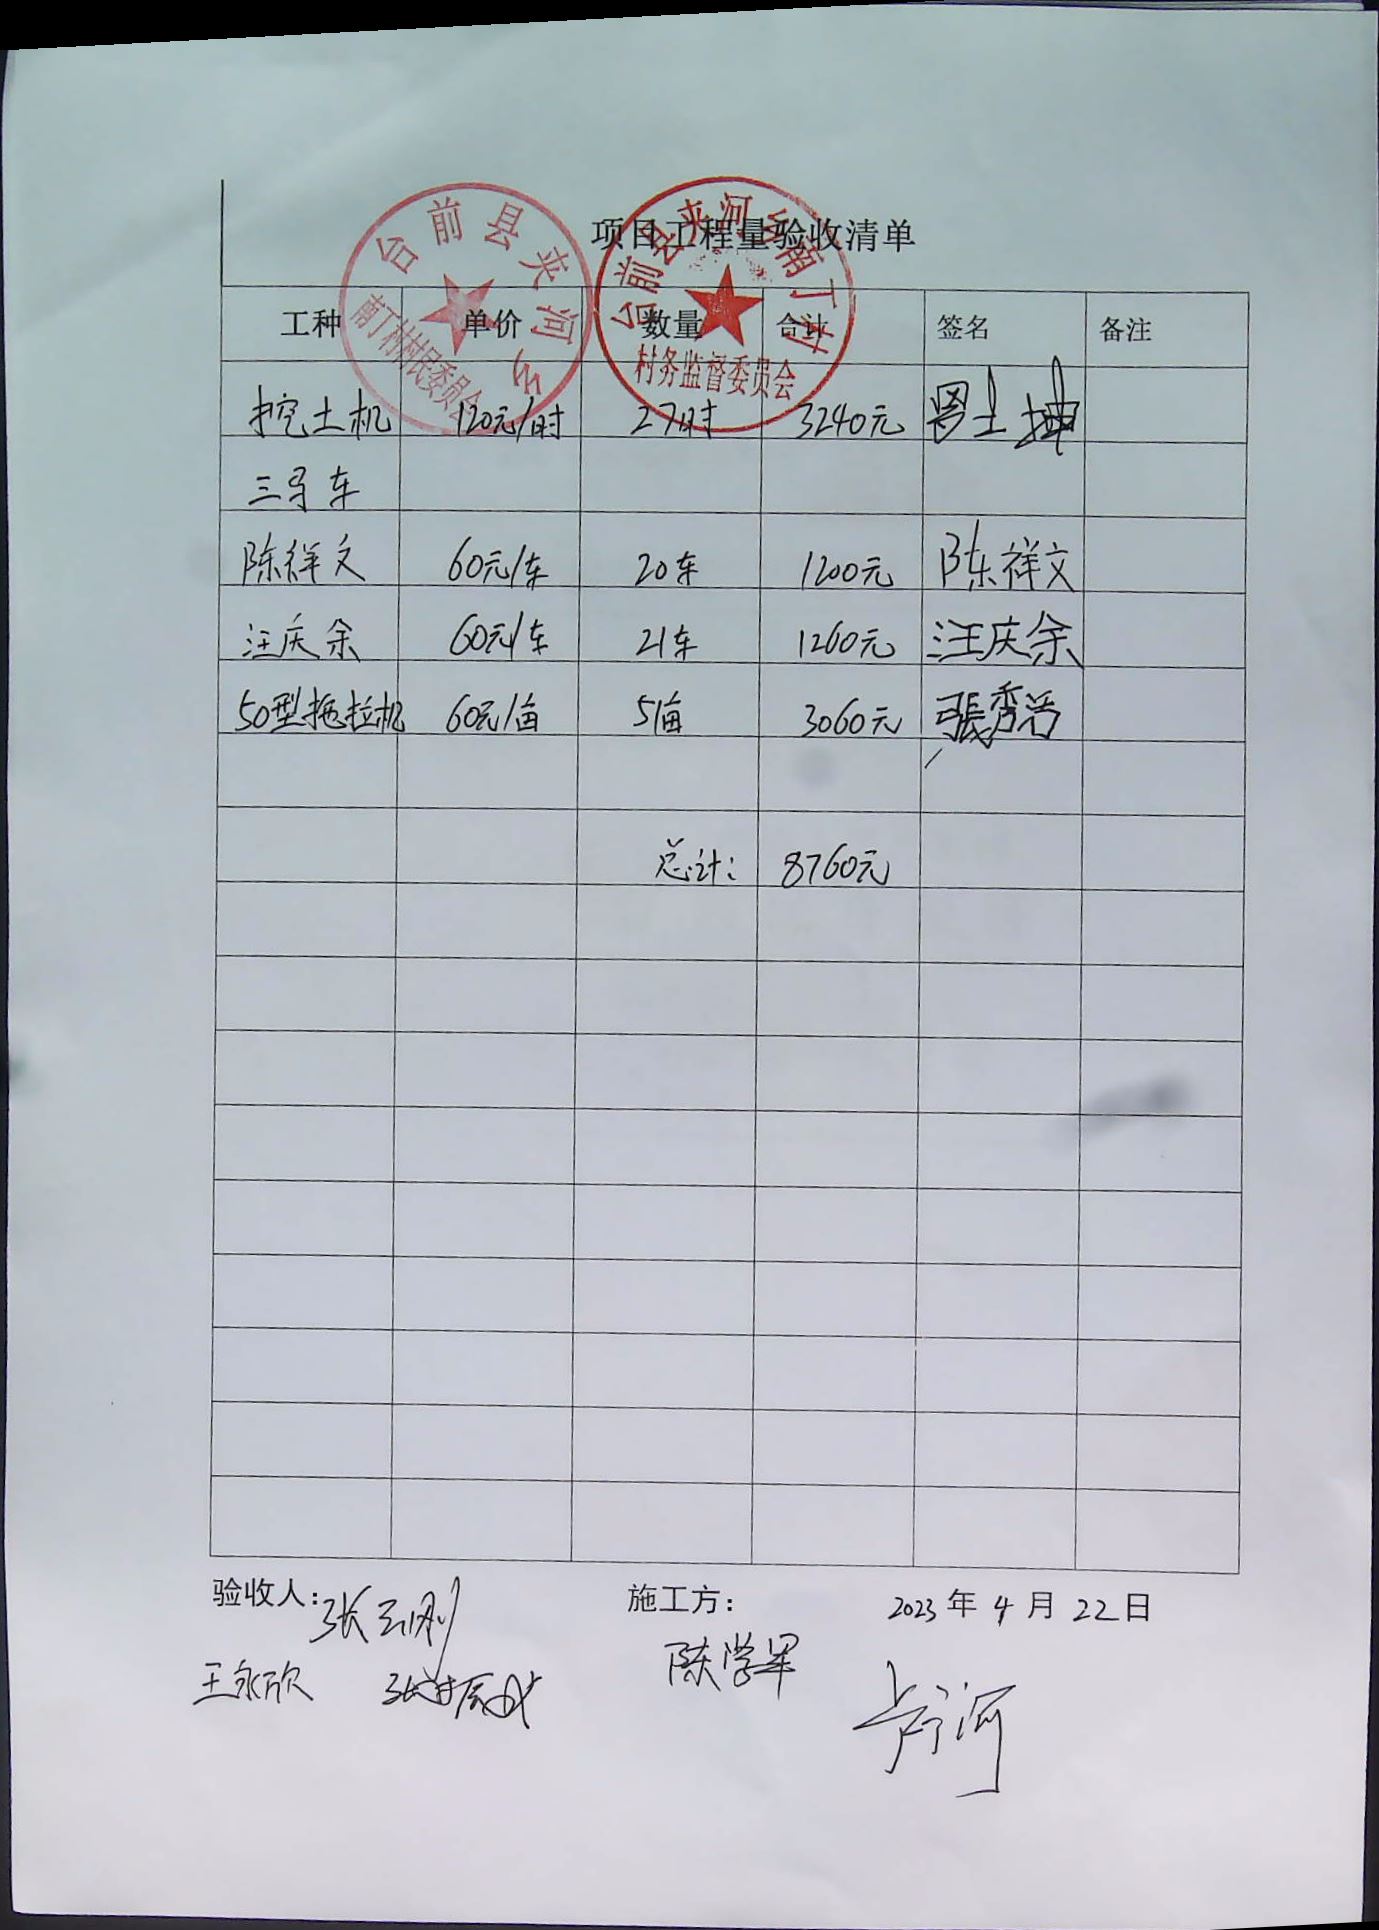 台前县夹河乡
南丁村村民委员会
台前县夹河乡南丁村
村务监督委员会
项目工程量验收清单
工种 单价 数量 合计 签名 备注
挖土机 120元/时 27时 3240元
三马车
陈祥文 60元/车 20车 1200元 陈祥文
汪庆余 60元/车 21车 1260元 汪庆余
50型拖拉机 60元/亩 51亩 3060元 張秀
总计: 8760元
验收人: 施工方: 2023年4月22日
张云刚 陈学军
王永欣